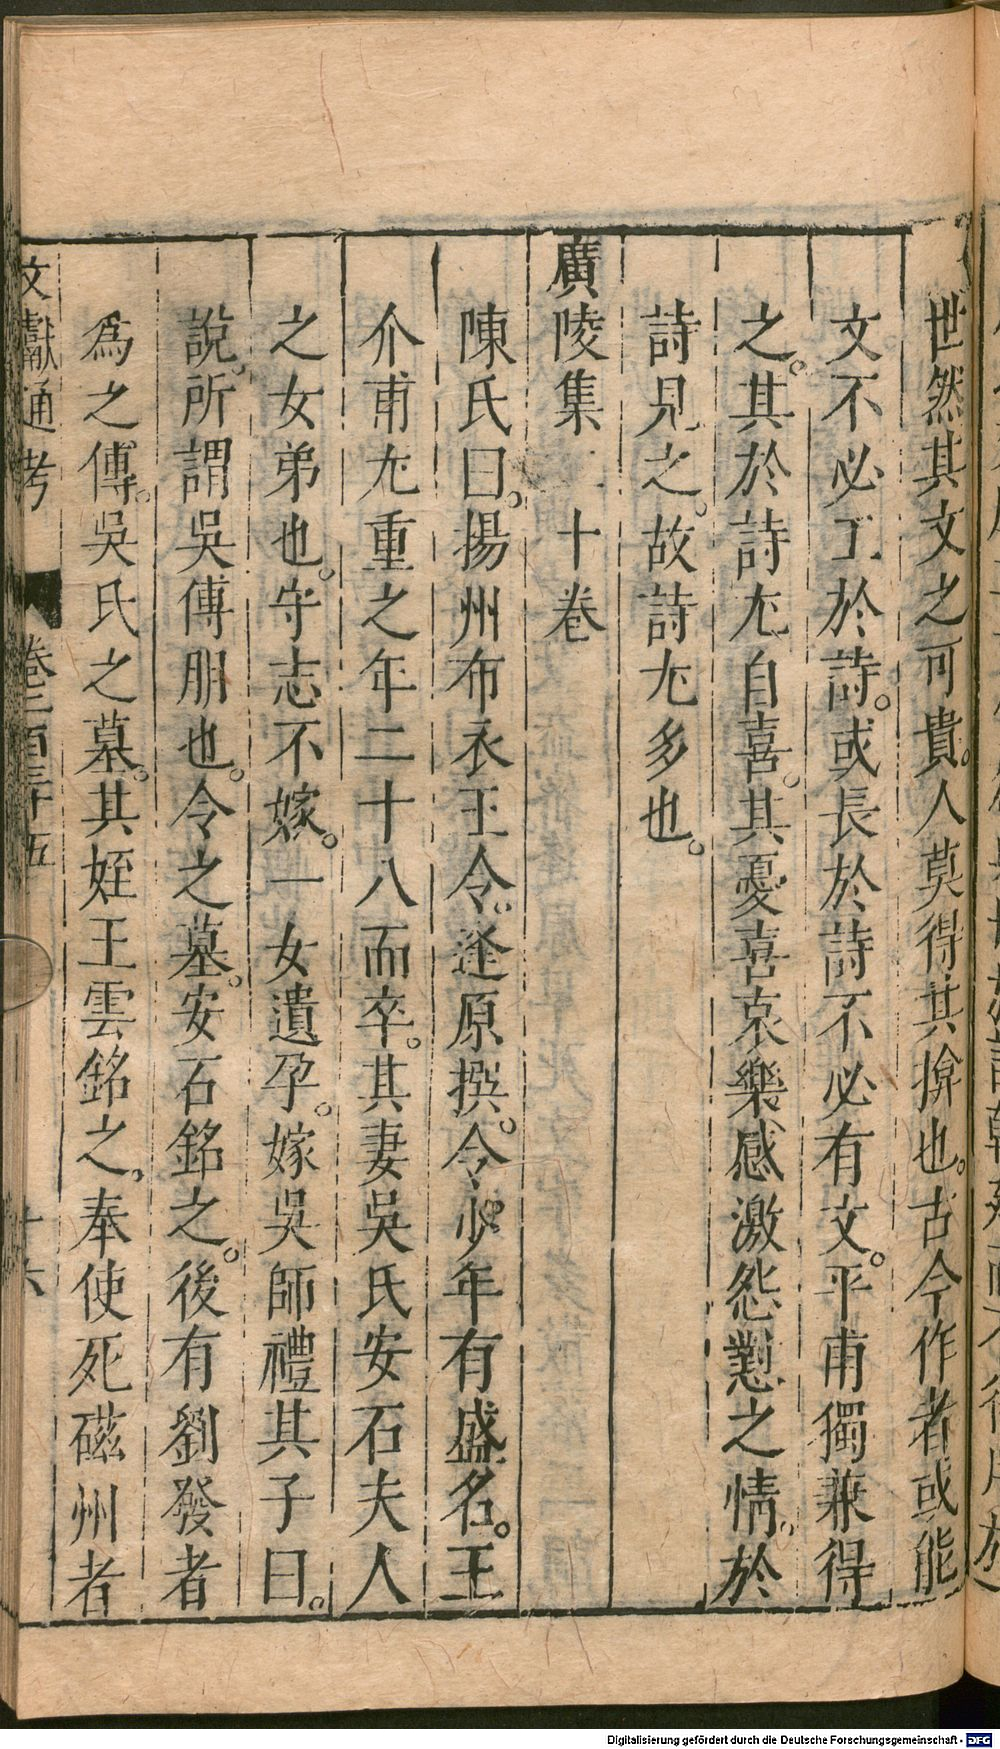 世然其文之可貴人莫得其揜也古今作者或能
文不必工於詩或長於詩不必有文平甫獨兼得
之其於詩尤自喜其憂喜哀樂感激怨懟之情於
詩見之故詩尤多也
廣陵集二十卷
陳氏曰揚州布衣王令逢原撰令少年有盛名王
介甫尤重之年二十八而卒其妻吳氏安石夫人
之女弟也守志不嫁一女遺孕嫁吳師禮其子曰
說所謂吳傅朋也令之墓安石銘之後有劉發者
為之傳吳氏之墓其姪王雲銘之奉使死磁州者
文獻通考 卷二百三十五 十六
Digitalisierung gefördert durch die Deutsche Forschungsgemeinschaft - DFG